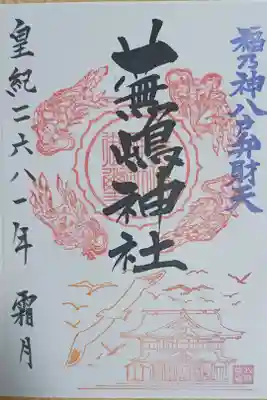 福乃神八方弁財天
蕪嶋神社
皇紀二六八一年 霜月